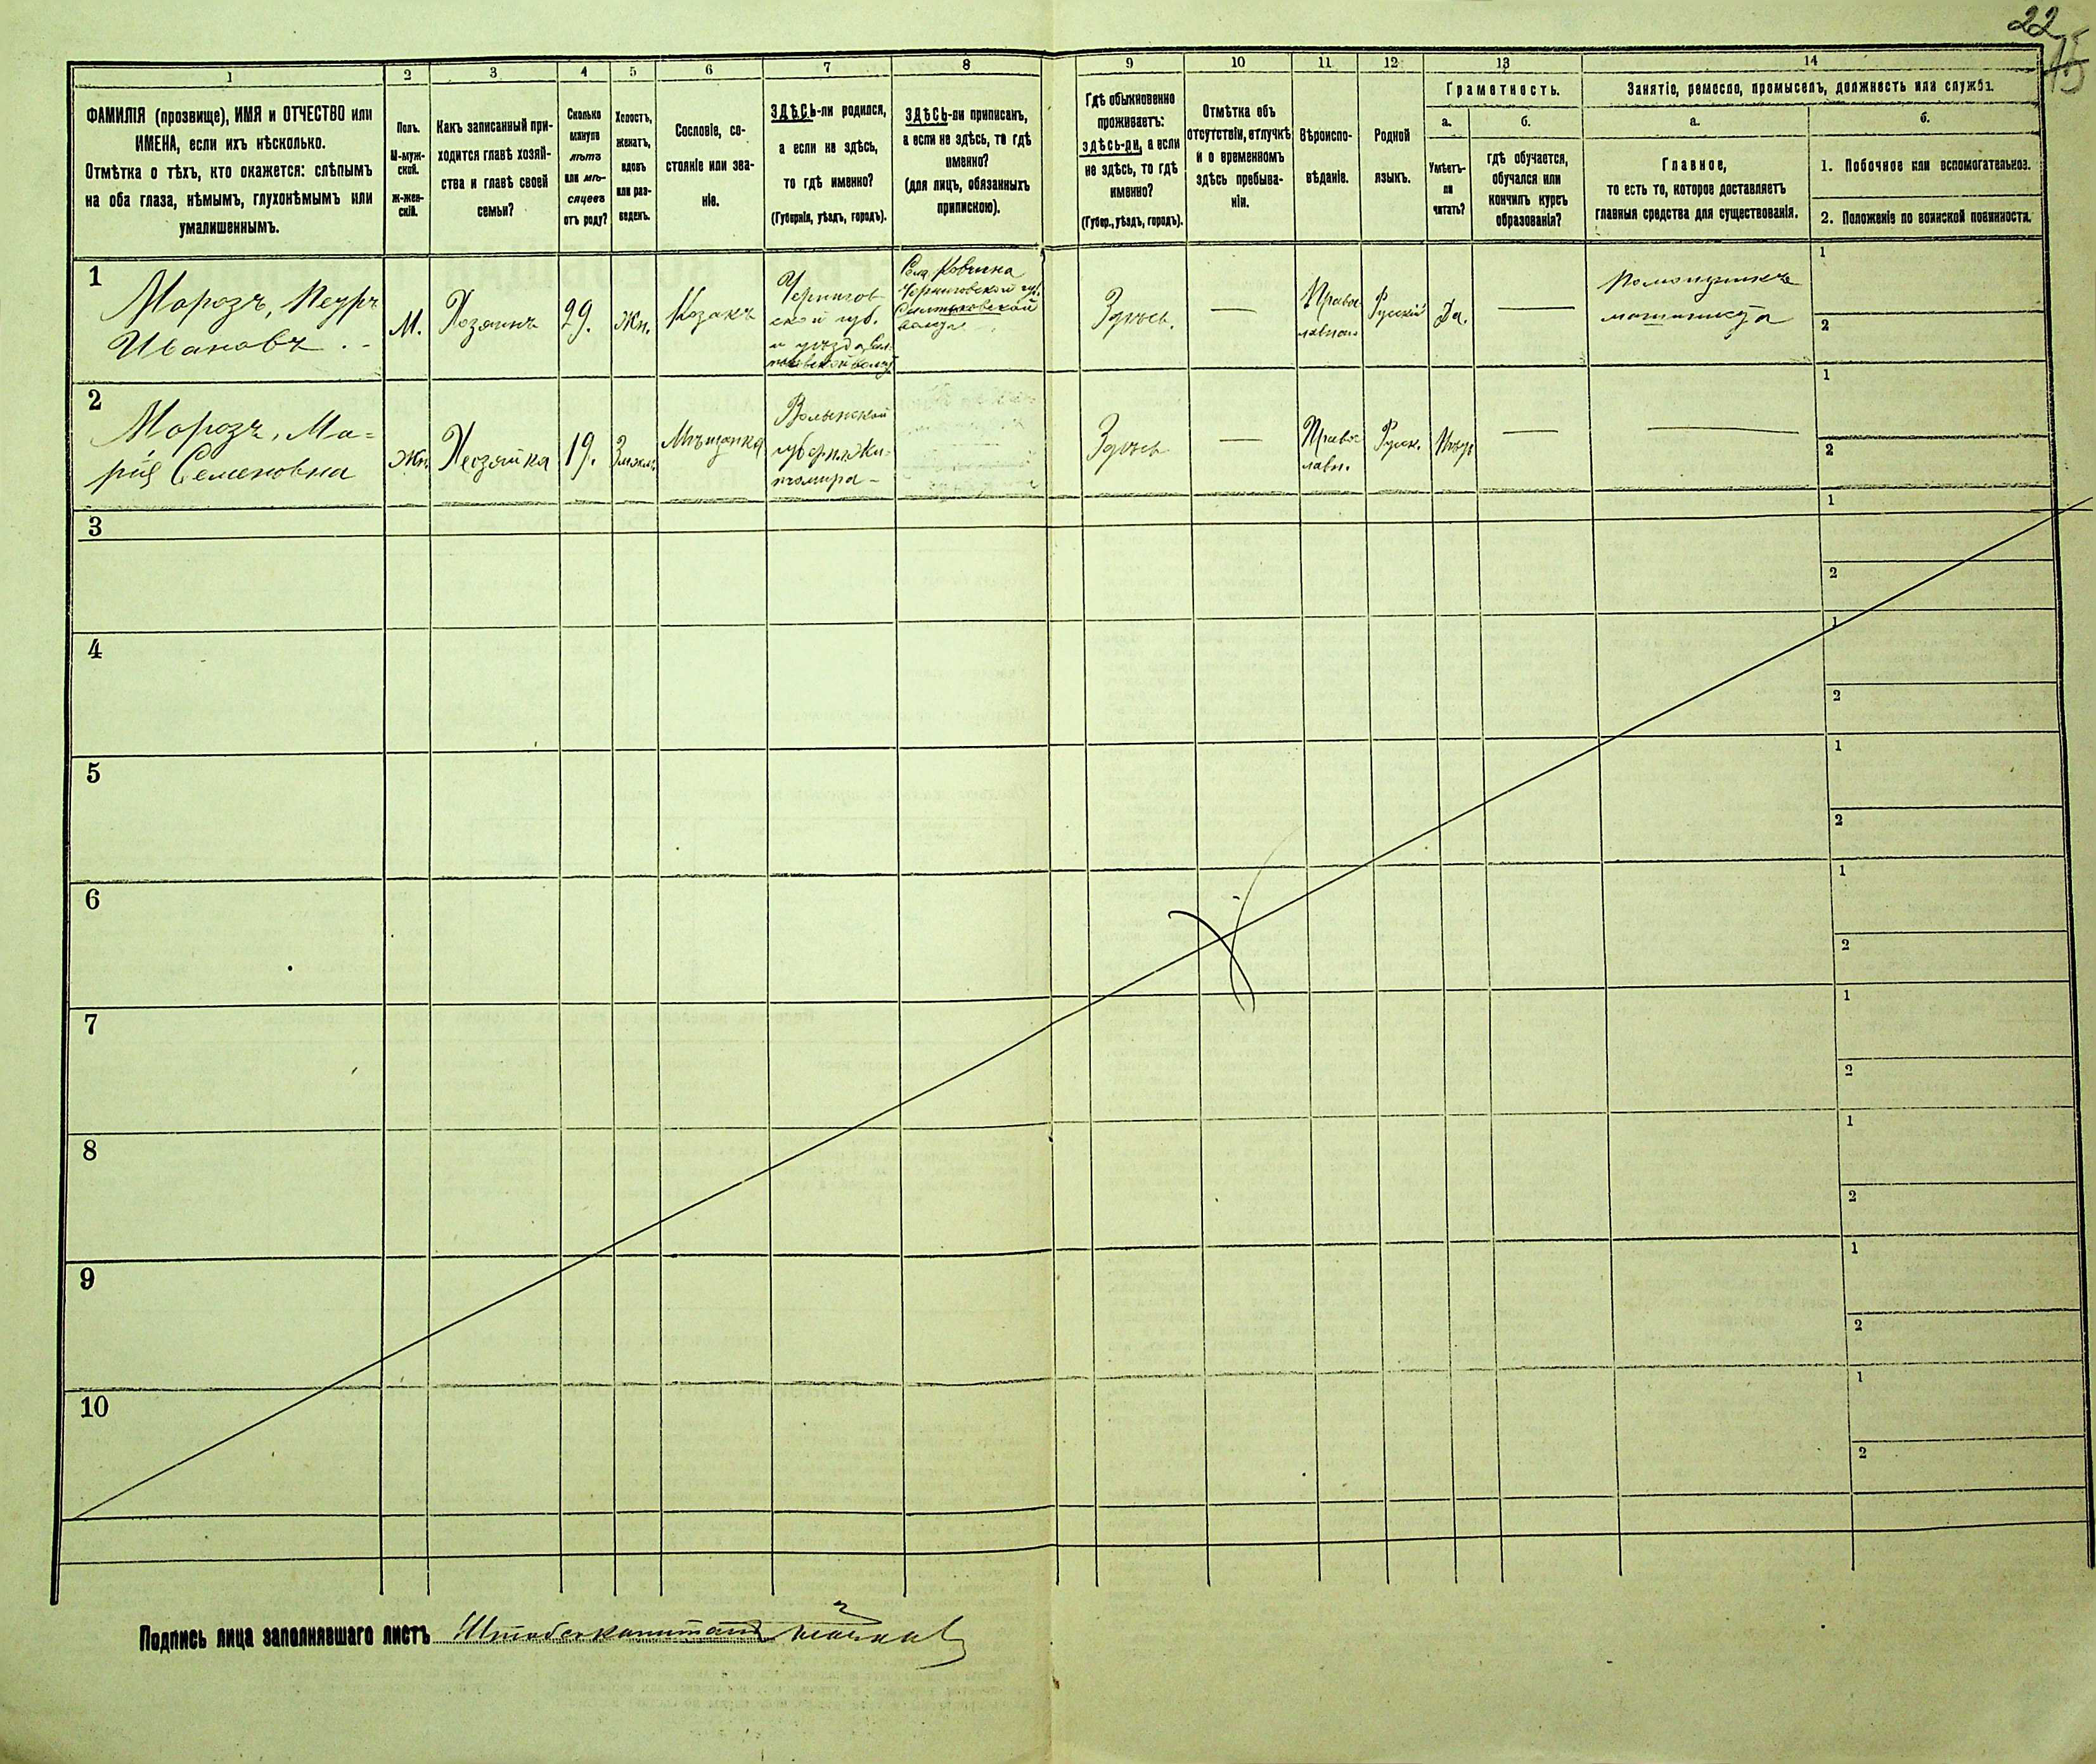 22
15
1
2
3
4
5
6
7
8
9
10
11
12
13
14
ФАМИЛІЯ (прозвище), ИМЯ и ОТЧЕСТВО или
ИМЕНА, если ихъ нѣсколько.
Отмѣтка о тѣхъ, кто окажется: слѣпымъ
на оба глаза, нѣмымъ, глухонѣмымъ или
умалишеннымъ.
Полъ.
М-муж-
ской.
Ж-жен-
скій.
Какъ записанный при-
ходится главѣ хозяй-
ства и главѣ своей
семьи?
Сколько
минуло
лѣтъ
или мѣ-
сяцевъ
отъ роду?
Холостъ,
женатъ,
вдовъ
или раз-
веденъ.
Сословіе, со-
стояніе или зва-
ніе.
ЗДѢСЬ-ли родился,
а если не здѣсь,
то гдѣ именно?
(Губернія, уѣздъ, городъ).
ЗДѢСЬ-ли приписанъ,
а если не здѣсь, то гдѣ
именно?
(для лицъ, обязанныхъ
припискою).
Гдѣ обыкновенно
проживаетъ:
здѣсь-ли, а если
не здѣсь, то гдѣ
именно?
(Губер., уѣздъ, городъ).
Отмѣтка объ
отсутствіи, отлучкѣ
и о временномъ
здѣсь пребыва-
ніи.
Вѣроиспо-
вѣданіе.
Родной
языкъ.
Грамотность.
а.
Умѣетъ-
ли
читать?
б.
гдѣ обучается,
обучался или
кончилъ курсъ
образованія?
Занятіе, ремесло, промыселъ, должность или служба.
а.
Главное,
то есть то, которое доставляетъ
главныя средства для существованія.
б.
1. Побочное или вспомогательное.
2. Положеніе по воинской повинности.
1
Морозъ, Петръ
Ивановъ
М.
Хозяинъ
29.
Жн.
Козакъ
Чернигов-
ской губ.
и уѣзда
Села
Черниговской губ.
Здѣсь.
Право
славная
Русскій
Да.
Помощникъ
машиниста
1
2
2
Морозъ, Ма=
рія Семеновна
Жн.
Хозяйка
19.
Мѣщанка
Волынской
губерніи Жи-
томира
Здѣсь
Право
славн.
Русск.
1
2
3
1
2
4
1
2
5
1
2
6
1
2
7
1
2
8
1
2
9
1
2
10
1
2
Подпись лица заполнявшаго листъ Штабскапитанъ